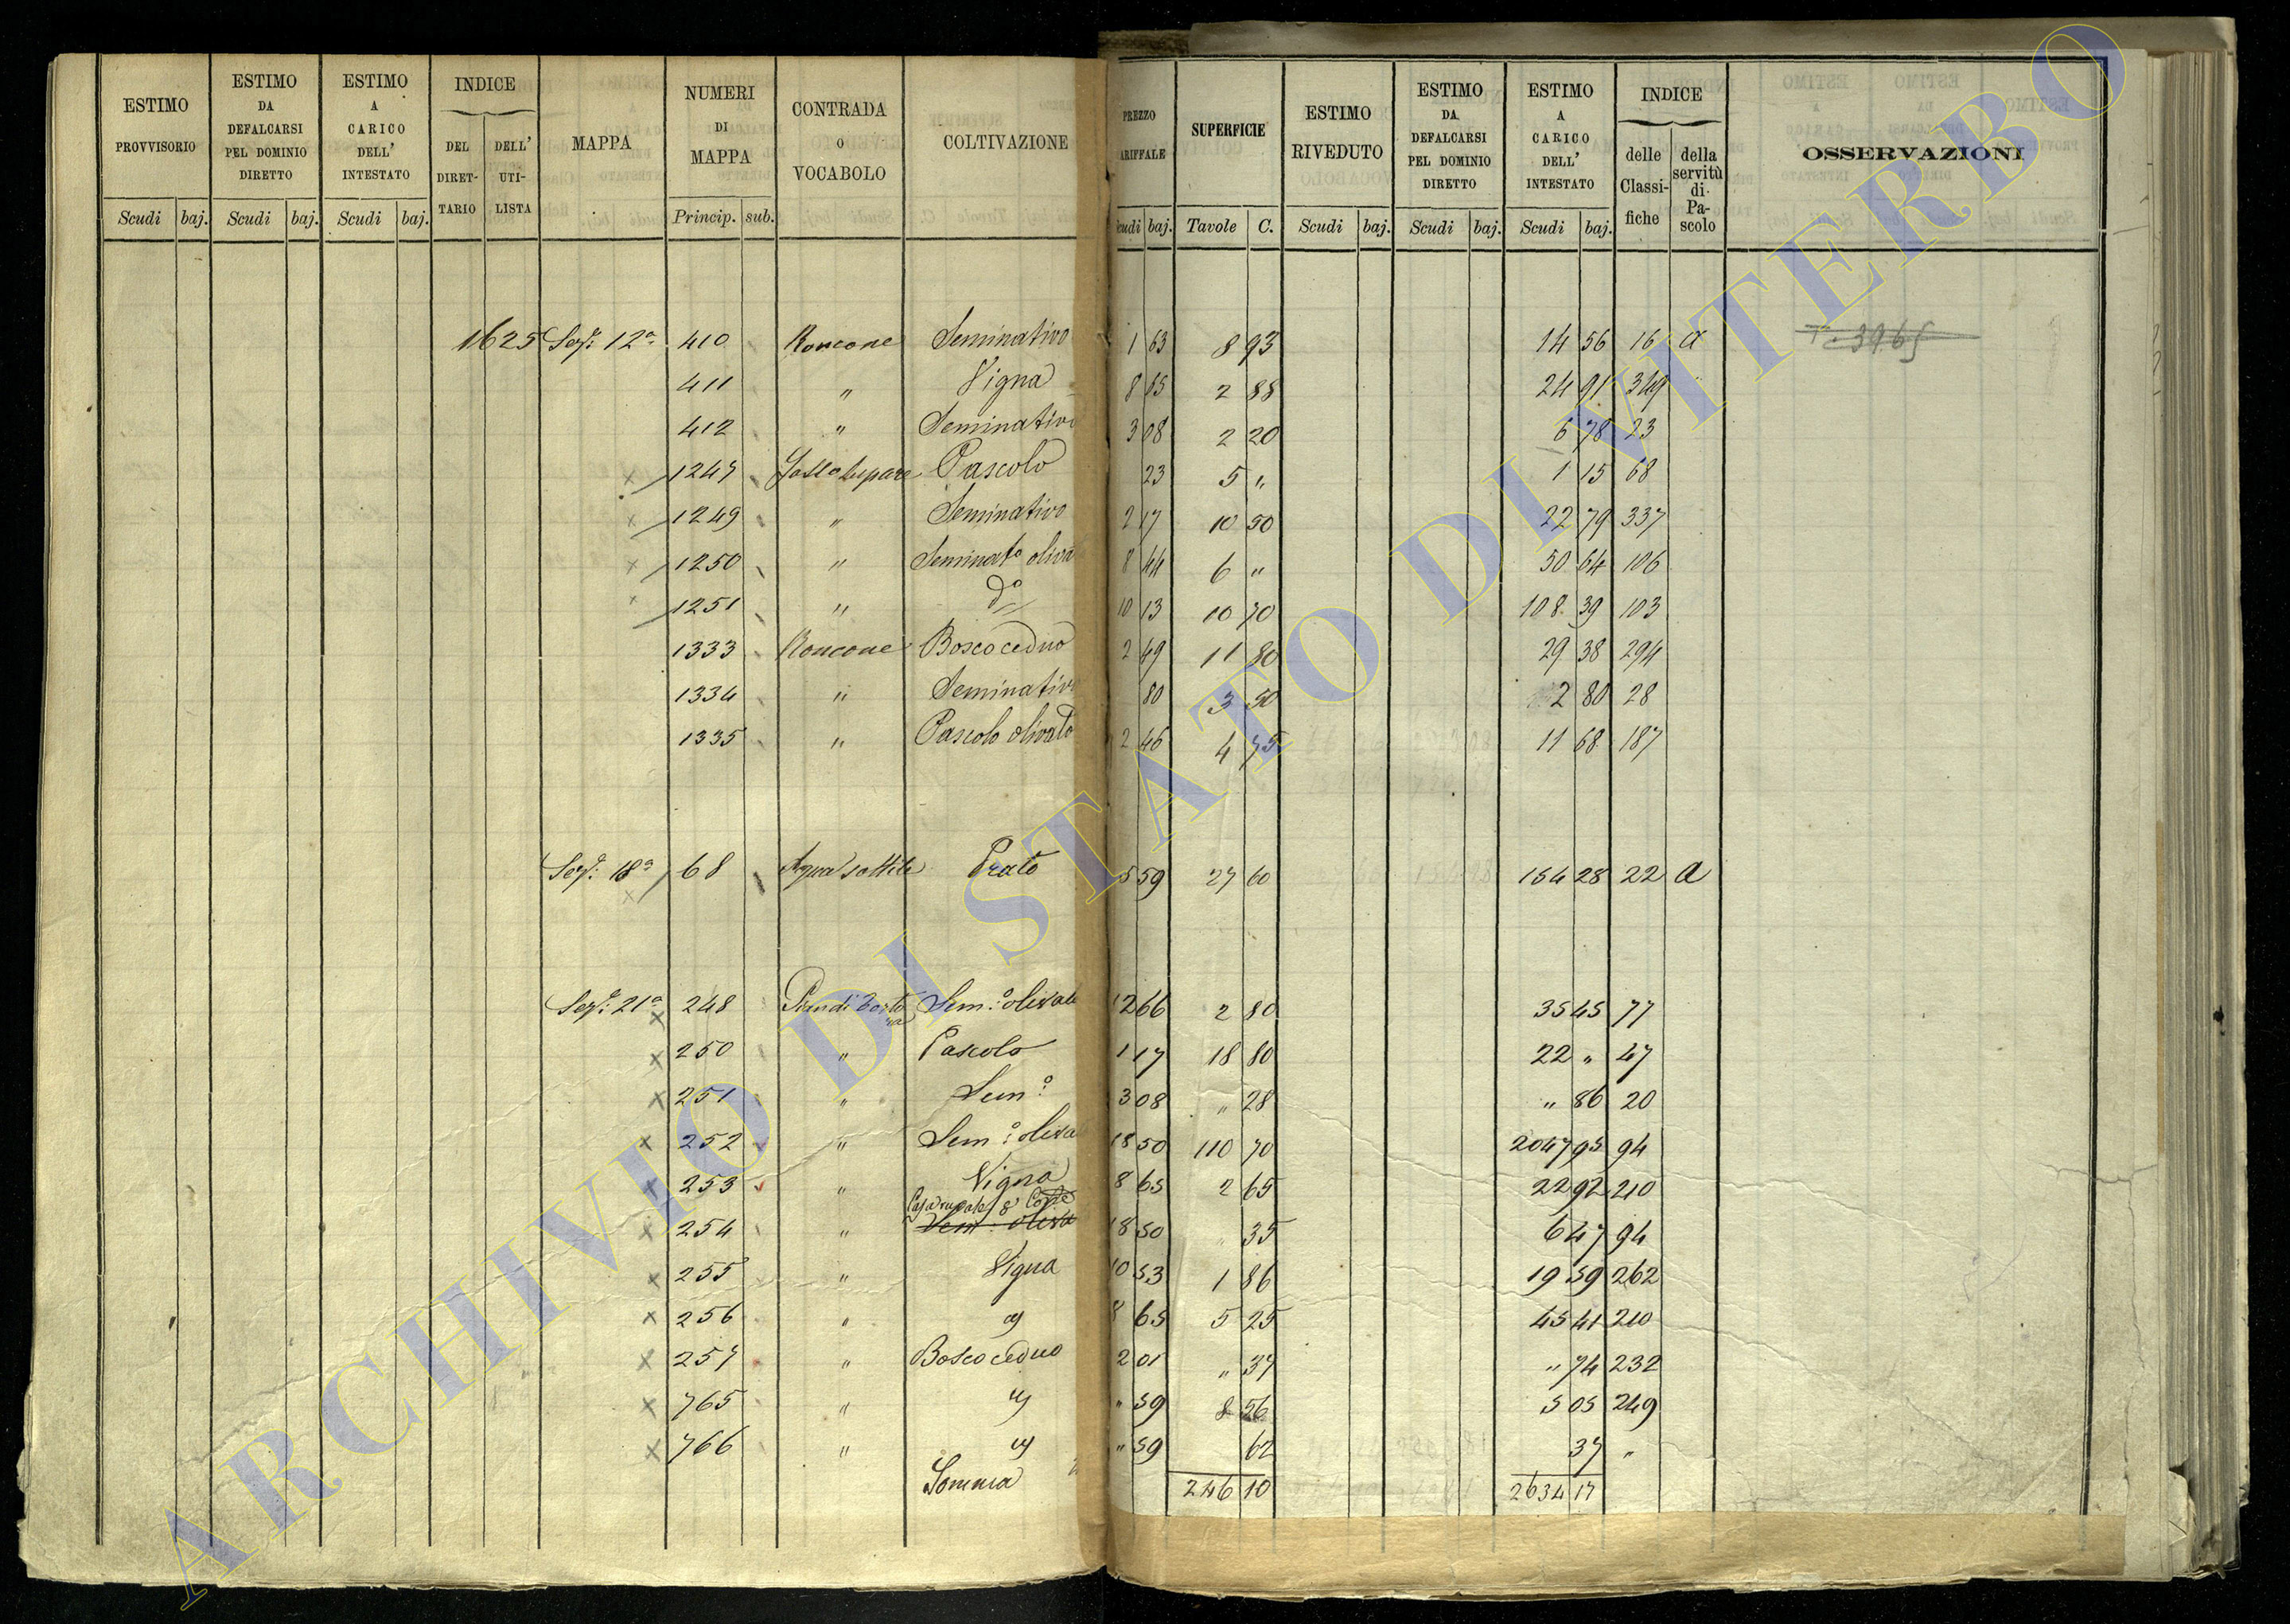 ESTIMO PROVVISORIO Scudi baj. ESTIMO DA DEFALCARSI PEL DOMINIO DIRETTO Scudi baj. ESTIMO A CARICO DELL' INTESTATO Scudi baj. INDICE DEL DIRET- TARIO DELL' UTI- LISTA MAPPA NUMERI DI MAPPA Princip. sub. CONTRADA O VOCABOLO COLTIVAZIONE
PREZZO ARIFFALE cudi baj. SUPERFICIE Tavole C. ESTIMO RIVEDUTO Scudi baj. ESTIMO DA DEFALCARSI PEL DOMINIO DIRETTO Scudi baj. ESTIMO A CARICO DELL' INTESTATO Scudi baj. INDICE delle Classi- fiche della servitù di Pa- scolo OSSERVAZIONI
1625 Sez.e 12a 410 Roncone Seminativo 1 63 8 93 14 56 16 a 3965
411 " Vigna 8 65 2 88 24 91 349
412 " Seminativo 3 08 2 20 6 78 23
1247 Pascolo 23 5 " 1 15 68
1249 " Seminativo 2 17 10 50 22 79 337
1250 " Seminato oliva 8 44 6 " 50 64 106
1251 " do 10 13 10 70 108 39 103
1333 Roncone Bosco ceduo 2 49 11 80 29 38 294
1334 " Seminativ 80 3 50 2 80 28
1335 " Pascolo olivato 2 46 4 75 11 68 187
Sez.e 18a 68 Aqua sottile Prato 5 59 27 60 154 28 22 a
Sez.e 21a 248 Sem.o olivato 12 66 2 80 35 45 77
250 " Pascolo 1 17 18 80 22 " 47
251 " Sem.o 3 08 " 28 " 86 20
252 " Sem.o oliva 18 50 110 70 2047 95 94
253 " Vigna 8 65 2 65 22 92 210
254 " Casa rurale Sem. oliva 18 50 " 35 6 47 94
255 " Vigna 10 53 1 86 19 59 262
256 " 8 65 5 25 45 41 210
257 " Bosco ceduo 2 01 " 37 " 74 232
765 " " 59 8 56 5 05 249
766 " " 59 62 37 "
Somma 246 10 2634 17
ARCHIVIO DI STATO DI VITERBO